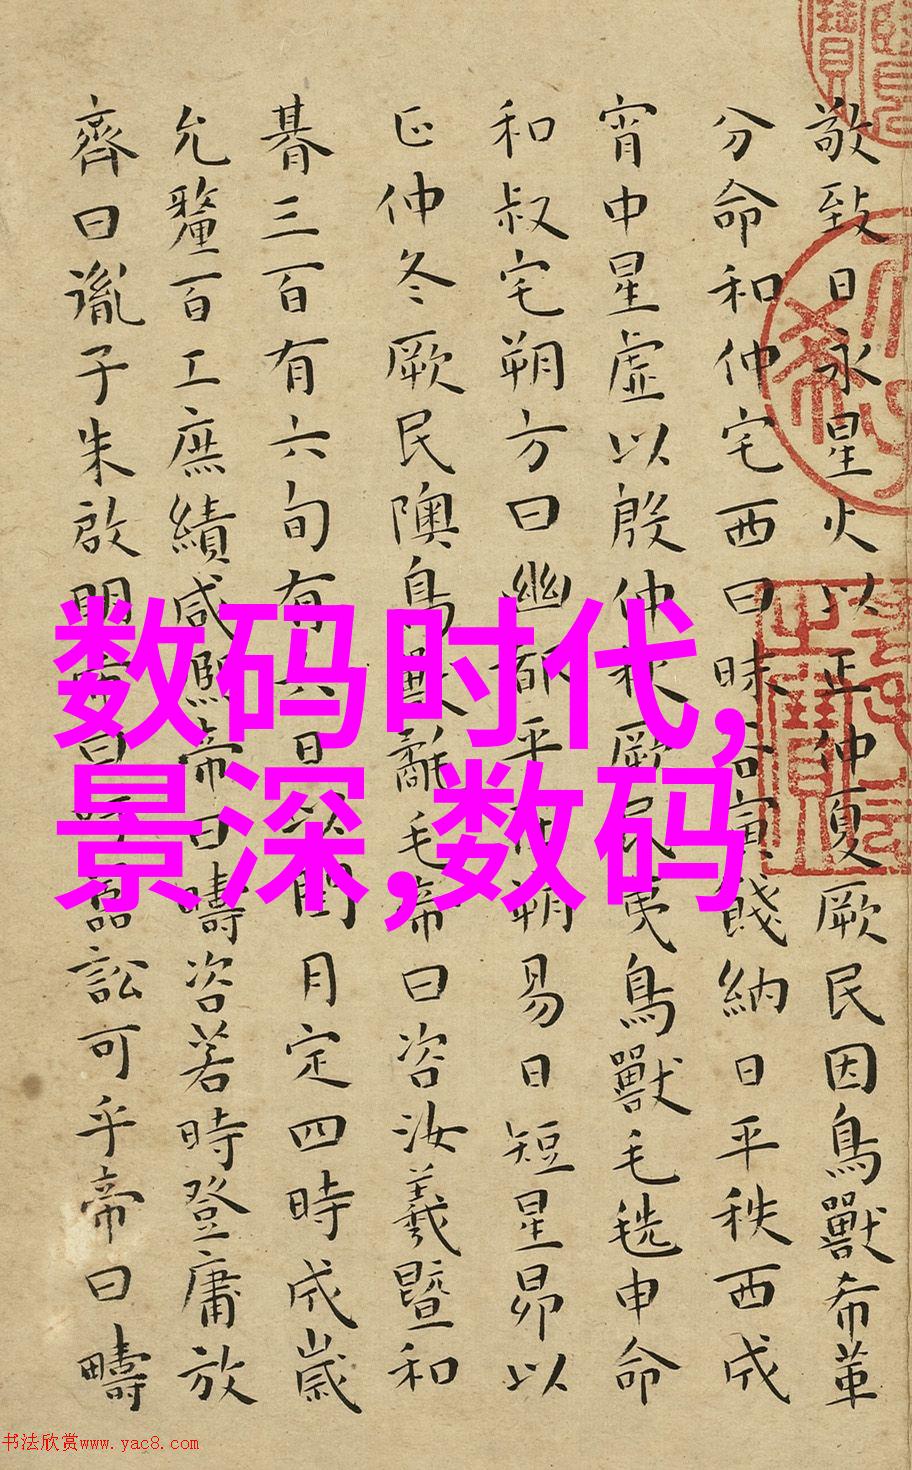 敬致日永星火以正仲夏厥民因鳥獸希革
分命和仲宅西曰昧谷寅餞納日平秩西成
宵中星虛以殷仲秋厥民夷鳥獸毛毨申命
和叔宅朔方曰幽都平在朔易日短星昴以
正仲冬厥民隩鳥獸氄毛帝曰咨汝羲暨和
朞三百有六旬有六日以閏月定四時成歲
允釐百工庶績咸熙帝曰疇咨若時登庸放
齊曰胤子朱啟明帝曰吁嚚訟可乎帝曰疇
数码时代,
景深,数码
书法欣赏www.yac8.com